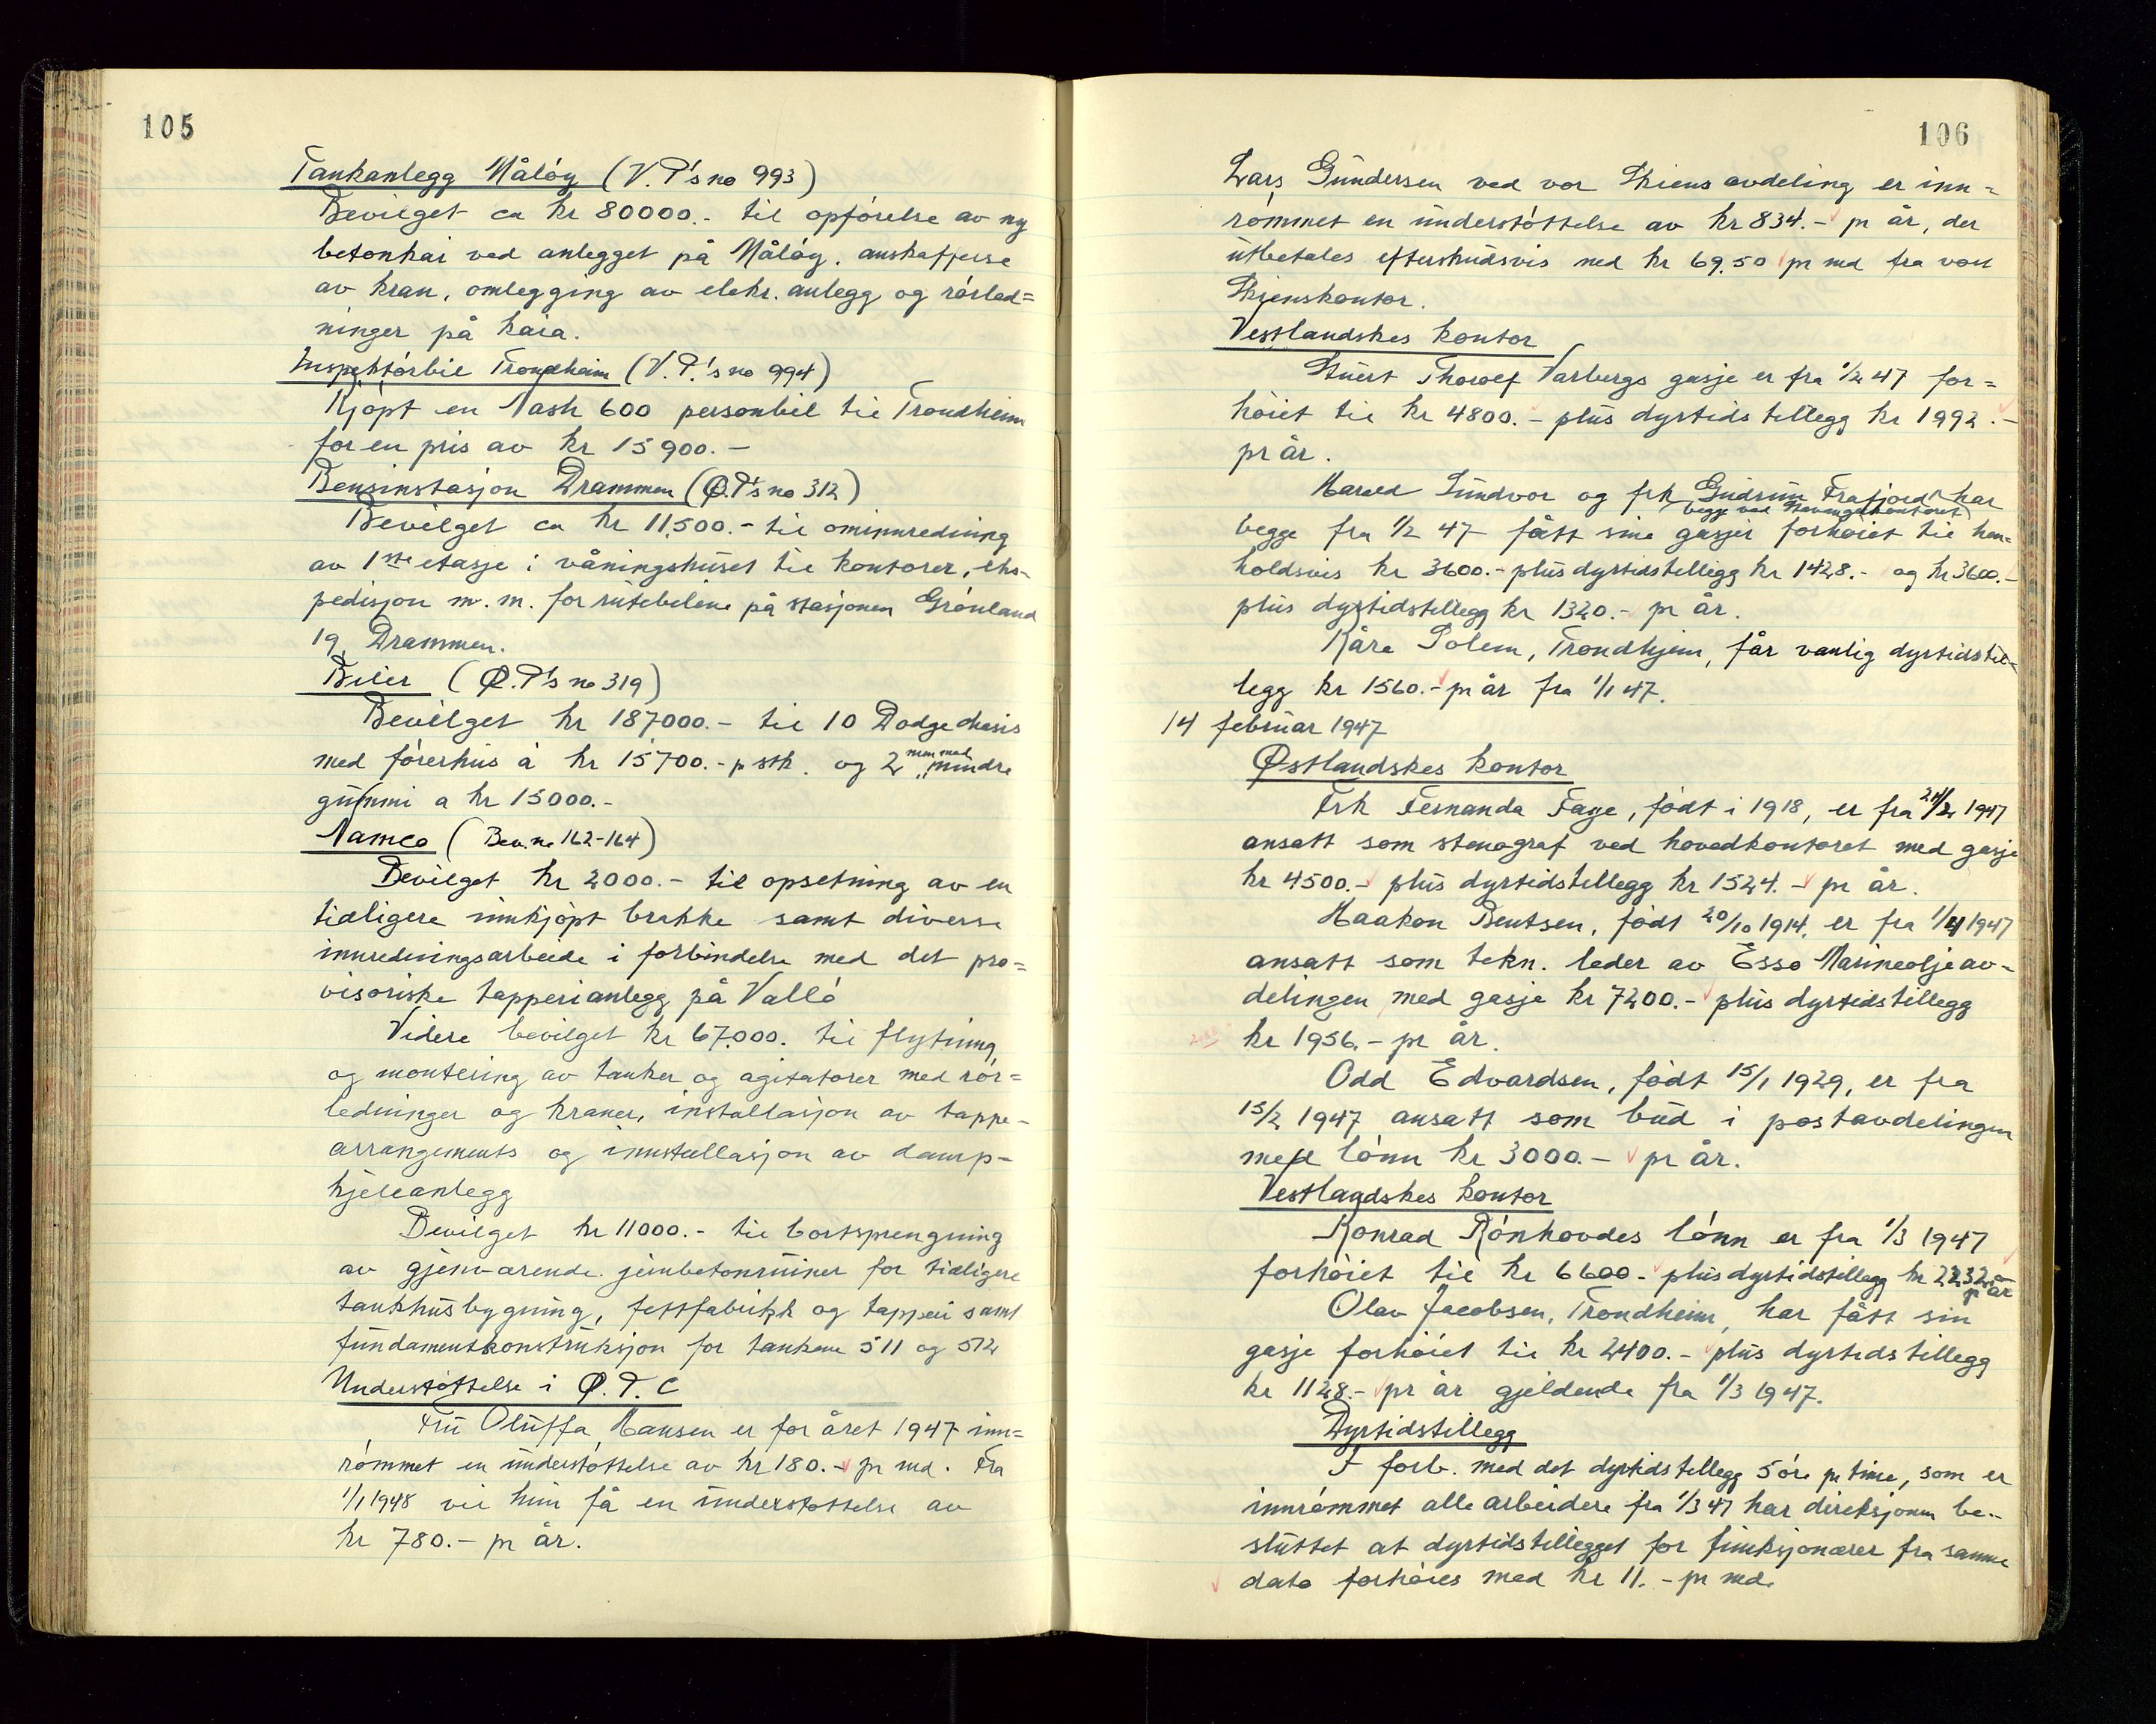 105
Tankanlegg Måløy (V.P's no 993)
Bevilget ca kr 80000.- til opførelse av ny
betonkai ved anlegget på Måløy, anskaffelse
av kran, omlegging av elekr. anlegg og rørled=
ninger på kaia.
Inspektørbil Trondheim (V.P.'s no 994)
Kjøpt en Nash 600 personbil til Trondheim
for en pris av kr 15900.-
Bensinstasjon Drammen (Ø.P's no 312)
Bevilget ca kr 11,500.- til ominnredning
av 1ste etasje i våningshuset til kontorer, eks-
pedisjon m.m. for rutebilene på stasjonen Grønland
19, Drammen.
Biler (Ø.P's no 319)
Bevilget kr 187000.- til 10 Dodge chasis
med førerhus à kr 15700.- p stk. og 2 men med mindre
gummi a kr 15000.-
Namco (Bev. no 162-164)
Bevilget kr 2000.- til opsetning av en
tidligere innkjøpt brakke samt diverse
innredningsarbeide i forbindelse med det pro=
visoriske tapperianlegg på Vallø
Videre bevilget kr 67,000. til flytning
og montering av tanker og agitatorer med rør=
ledninger og kraner, installasjon av tappe-
arrangements og innstallasjon av damp-
kjeleanlegg
Bevilget kr 11000.- til bortsprengning
av gjenværende jernbetonruiner for tidligere
tankhusbygning, fettfabrikk og tapperi samt
fundamentkonstruksjon for tankene 511 og 512
Understøttelse i Ø.P.C
Fru Oluffa Hansen er for året 1947 inn=
rømmet en understøttelse av kr 180.- pr md. Fra
1/1 1948 vil hun få en understøttelse av
kr 780.- pr år.
106
Lars Gundersen ved vor Skiens avdeling er inn=
rømmet en understøttelse av kr 834.- pr år, der
utbetales efterskudsvis med kr 69.50 pr md fra vort
Skienskontor.
Vestlandskes kontor
Stuert Thorolf Varbergs gasje er fra 1/2 47 for=
høiet til kr 4800.- plus dyrtidstillegg kr 1992.-
pr år.
Harald Sundvor og frk Gudrun Frafjord har
(begge ved Stavangerkontoret)
begge fra 1/2 47 fått sine gasjer forhøiet til hen=
holdsvis kr 3600.- plus dyrtidstillegg kr 1428.- og kr 3600.-
plus dyrtidstillegg kr 1320.- pr år.
Kåre Solem, Trondhjem, får vanlig dyrtidstil-
legg kr 1560.- pr år fra 1/1 47.
14 februar 1947
Østlandskes kontor
Frk Fernanda Faye, født i 1918, er fra 24/2 1947
ansatt som stenograf ved hovedkontoret med gasje
kr 4500.- plus dyrtidstillegg kr 1524.- pr år.
Haakon Bentsen, født 20/10 1914, er fra 1/4 1947
ansatt som tekn. leder av Esso Marineoljeav-
delingen med gasje kr 7200.- plus dyrtidstillegg
kr 1956.- pr år.
Odd Edvardsen, født 15/1 1929, er fra
15/2 1947 ansatt som bud i postavdelingen
med lønn kr 3000.- pr år.
Vestlandskes kontor
Konrad Rønhovdes lønn er fra 1/3 1947
forhøiet til kr 6600.- plus dyrtidstillegg kr 2232.- pr år
Olav Jacobsen, Trondheim, har fått sin
gasje forhøiet til kr 2400.- plus dyrtidstillegg
kr 1128.- pr år gjeldende fra 1/3 1947.
Dyrtidstillegg
I forb. med det dyrtidstillegg 5 øre pr time, som er
innrømmet alle arbeidere fra 1/3 47 har direksjonen be-
sluttet at dyrtidstillegget for funksjonærer fra samme
dato forhøies med kr 11.- pr md.